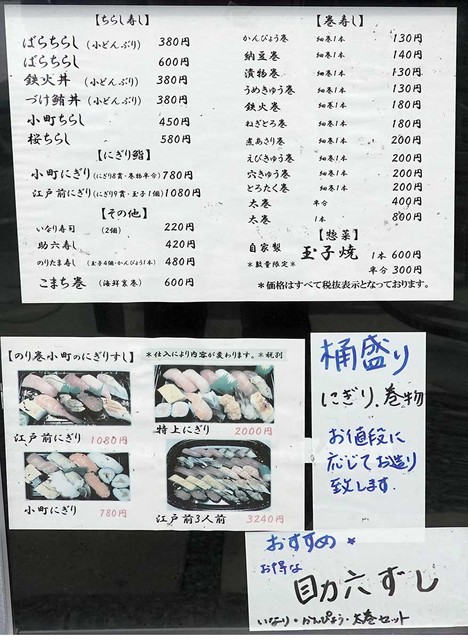 【ちらし寿し】
ばらちらし (小どんぶり) 380円
ばらちらし 600円
鉄火丼 (小どんぶり) 380円
づけ鮪丼 (小どんぶり) 380円
小町ちらし 450円
桜ちらし 580円
【にぎり鮨】
小町にぎり(にぎり8貫・巻物半分) 780円
江戸前にぎり(にぎり9貫・玉子1個) 1080円
【その他】
いなり寿司 (2個) 220円
助六寿し 420円
のりたま寿し (玉子4個・かんぴょう1本) 480円
こまち巻 (海鮮裏巻) 600円
【巻寿し】
かんぴょう巻 細巻1本 130円
納豆巻 細巻1本 140円
漬物巻 細巻1本 130円
うめきゅう巻 細巻1本 130円
鉄火巻 細巻1本 180円
ねぎとろ巻 細巻1本 180円
煮あさり巻 細巻1本 200円
えびきゅう巻 細巻1本 200円
穴きゅう巻 細巻1本 200円
とろたく巻 細巻1本 200円
太巻 半分 400円
太巻 1本 800円
【惣菜】
自家製 玉子焼 1本 600円
*数量限定* 半分 300円
*価格はすべて税抜表示となっております。
【のり巻小町のにぎりすし】 *仕入により内容が変わります。*税別
江戸前にぎり 1080円
特上にぎり 2000円
小町にぎり 780円
江戸前3人前 3240円
桶盛り
にぎり、巻物
お値段に
応じてお造り
致します.
おすすめ *
お得な
助六ずし
いなり・かんぴょう・太巻セット